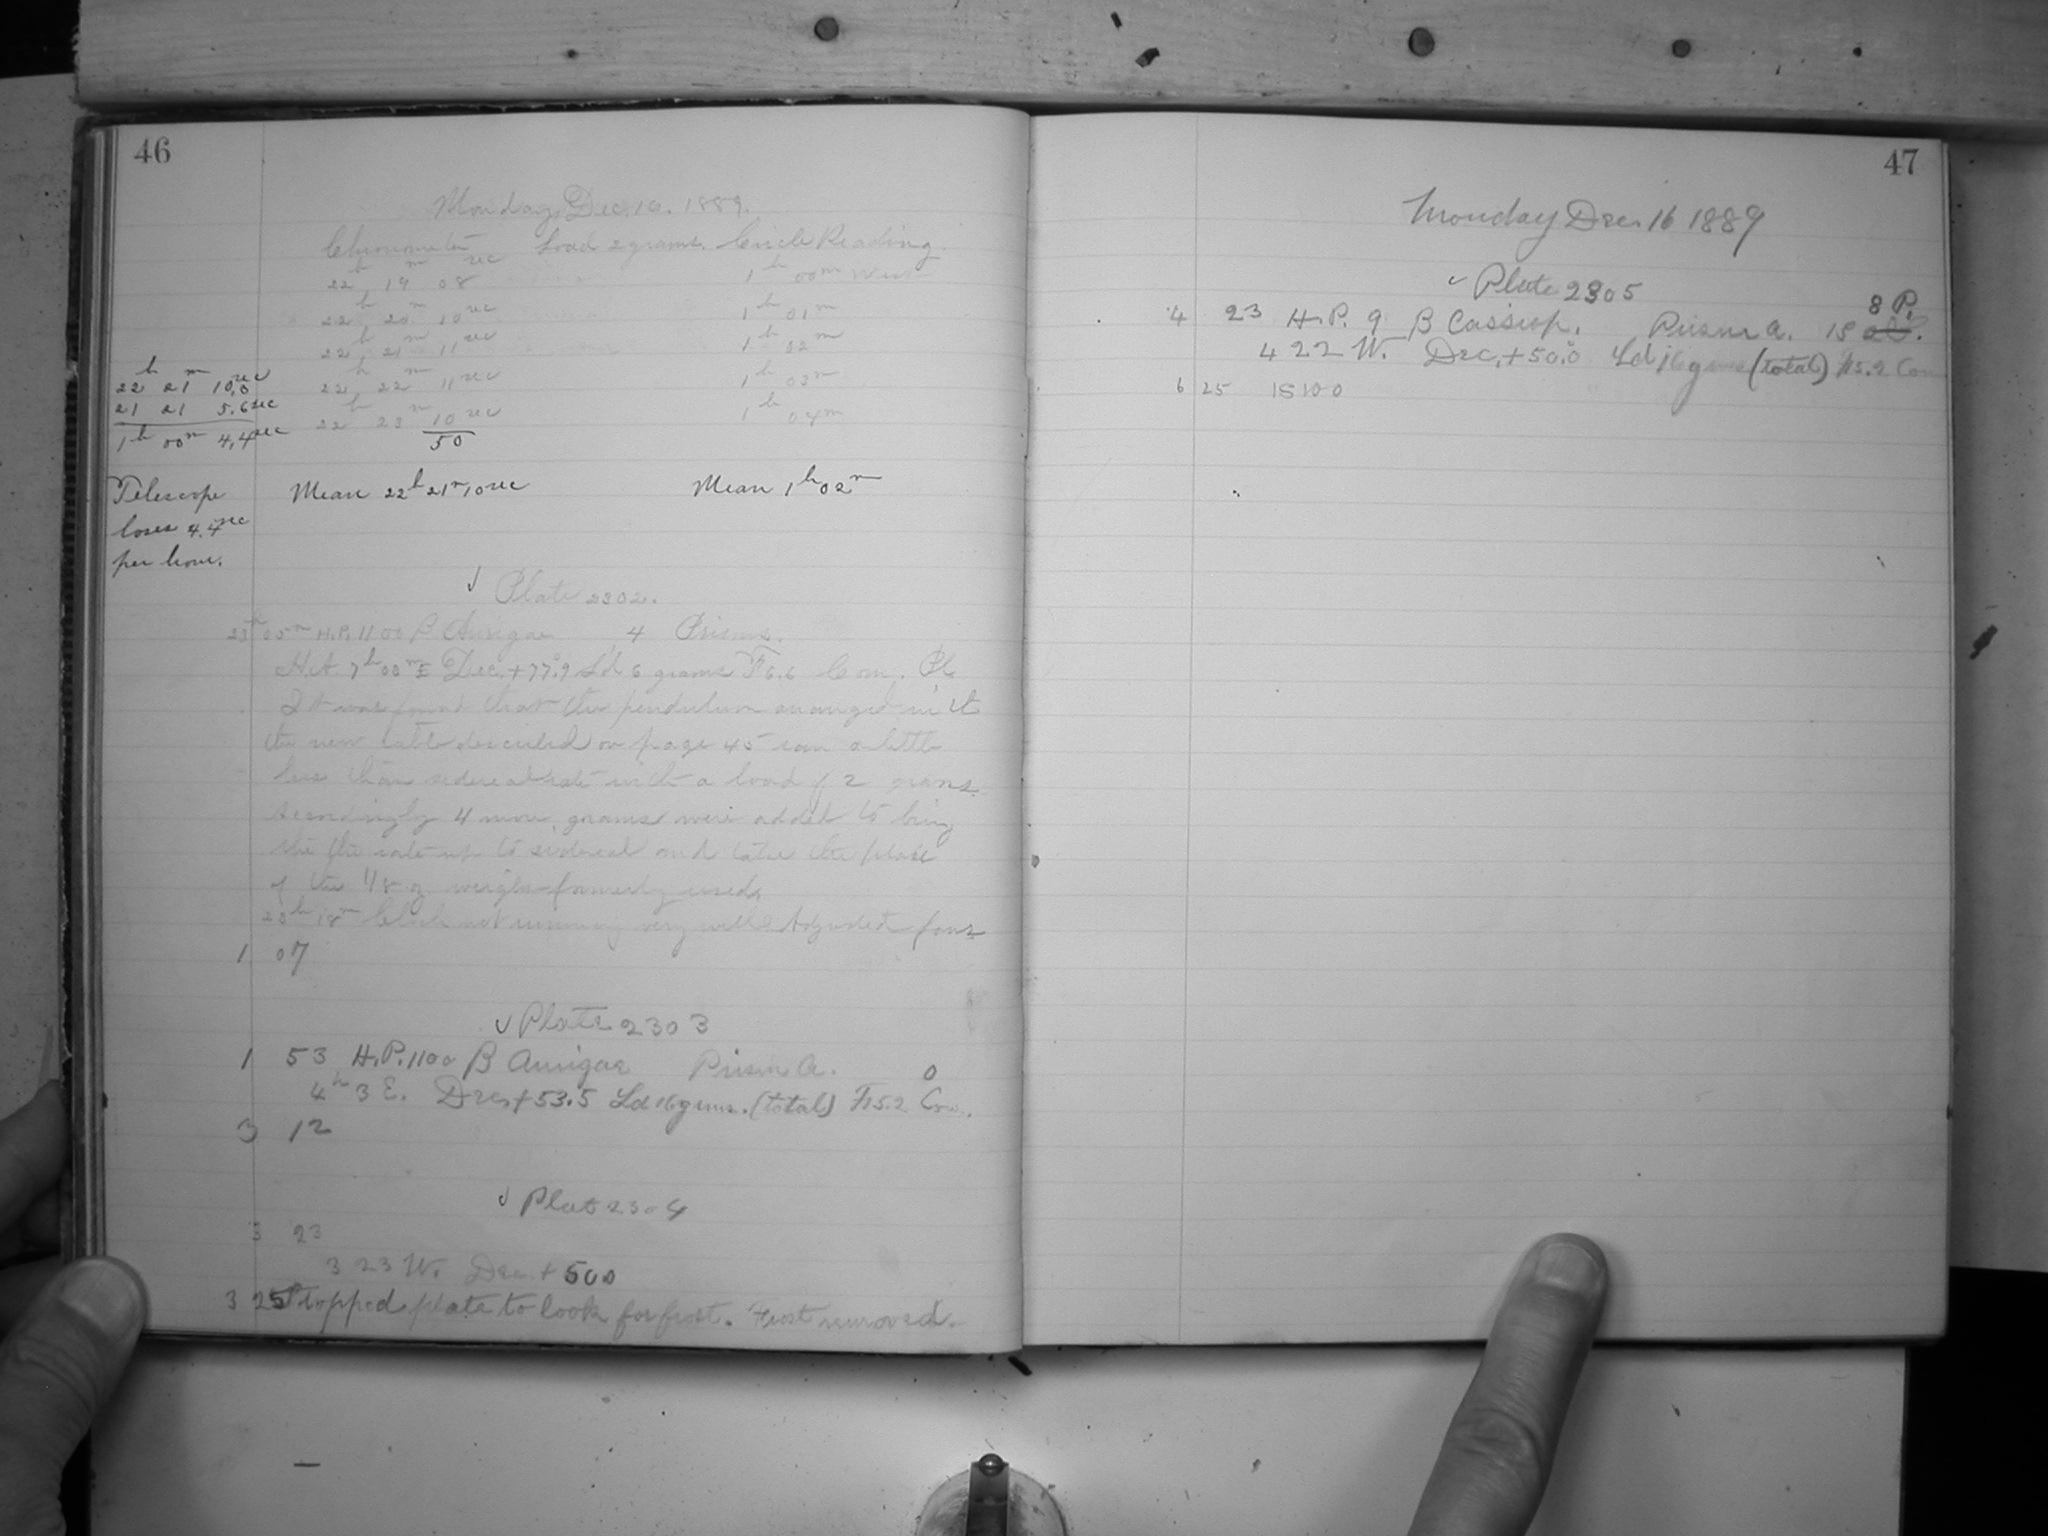 46
Monday, Dec. 16. 1889.
Chronometer Load 2 grams. Circle Reading.
22h 19m 08sec 1h 00m West
22h 20m 10sec 1h 01m
22h 21m 11sec 1h 02m
22h 22m 11sec 1h 03m
22h 23m 10sec 1h 04m
50
22h 21m 10,0sec
21 21 5.6sec
1h 00m 4,4sec
Telescope
loses 4.4sec
per hour.
Mean 22h 21m 10sec Mean 1h 02m
✓ Plate 2302.
23h 05m H.P. 1100 β Aurigae 4 Prisms.
H.A. 7h 00m E Dec. + 77°.9 Ld 6 grams F6.6 Com. Pl
It was found that the pendulum arranged with
the new table described on page 45 ran a little
less than sidereal rate with a load of 2 grams.
Accordingly 4 more grams were added to bring
the the rate up to sidereal and take the place
of the 1/8 oz weight formerly used.
23h 18m Clock not running very well. Adjusted fans
1 07
✓ Plate 2303
1 53 H.P. 1100 β Aurigae Prism A. 0
4h 3 E. Dec + 53.5 Ld 16 gms. (total) F15.2 Com.
3 12
✓ Plate 2304
3 23
3 23 W. Dec. + 500
3 25 Stopped plate to look for frost. Frost removed.
47
Monday Dec. 16 1889
✓ Plate 2305
8 P.
4 23 H.P. 9 β Cassiop. Prism A. 15
4 22 W. Dec. +50.°0 Ld 16 gms (total) F15.2 Com
6 25 15100